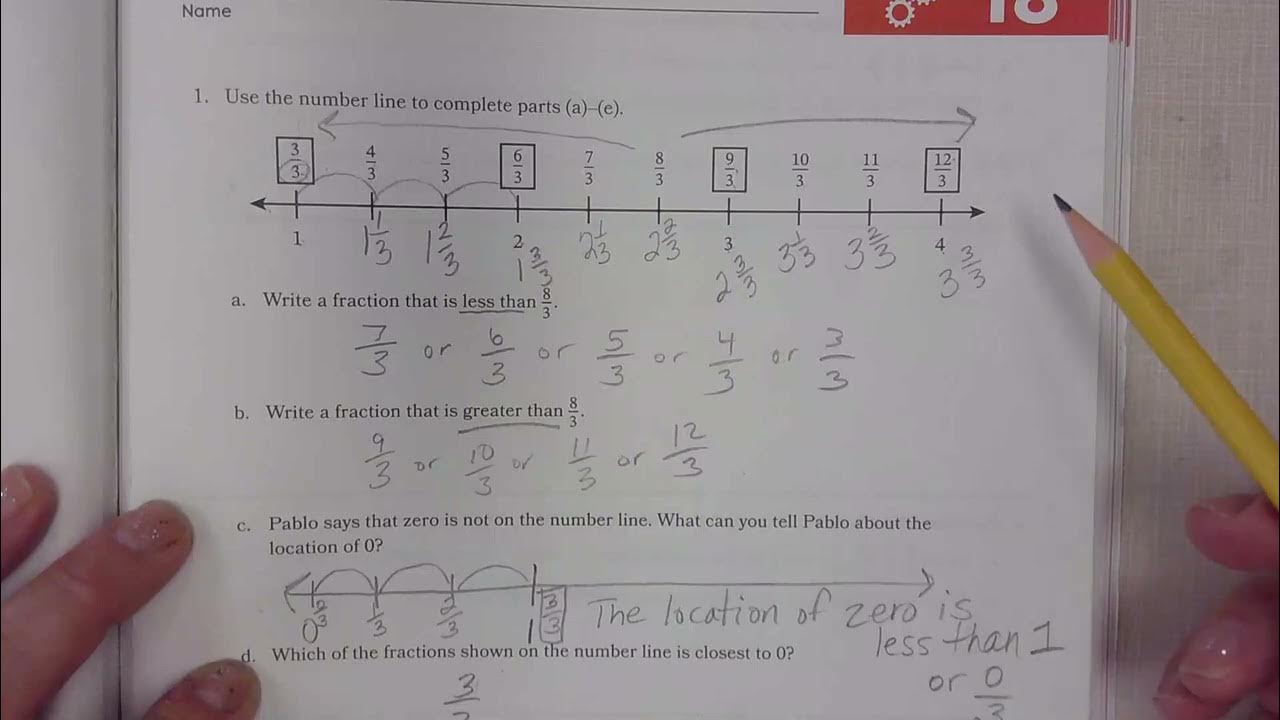 Name
18
1. Use the number line to complete parts (a)–(e).
3/3 4/3 5/3 6/3 7/3 8/3 9/3 10/3 11/3 12/3
1 1 1/3 1 2/3 2 2 1/3 2 2/3 3 3 1/3 3 2/3 4
1 3/3 2 3/3 3 3/3
a. Write a fraction that is less than 8/3.
7/3 or 6/3 or 5/3 or 4/3 or 3/3
b. Write a fraction that is greater than 8/3.
9/3 or 10/3 or 11/3 or 12/3
c. Pablo says that zero is not on the number line. What can you tell Pablo about the
location of 0?
0 1/3 2/3 1 3/3 The location of zero is
less than 1
d. Which of the fractions shown on the number line is closest to 0?
or 0/3
3/3